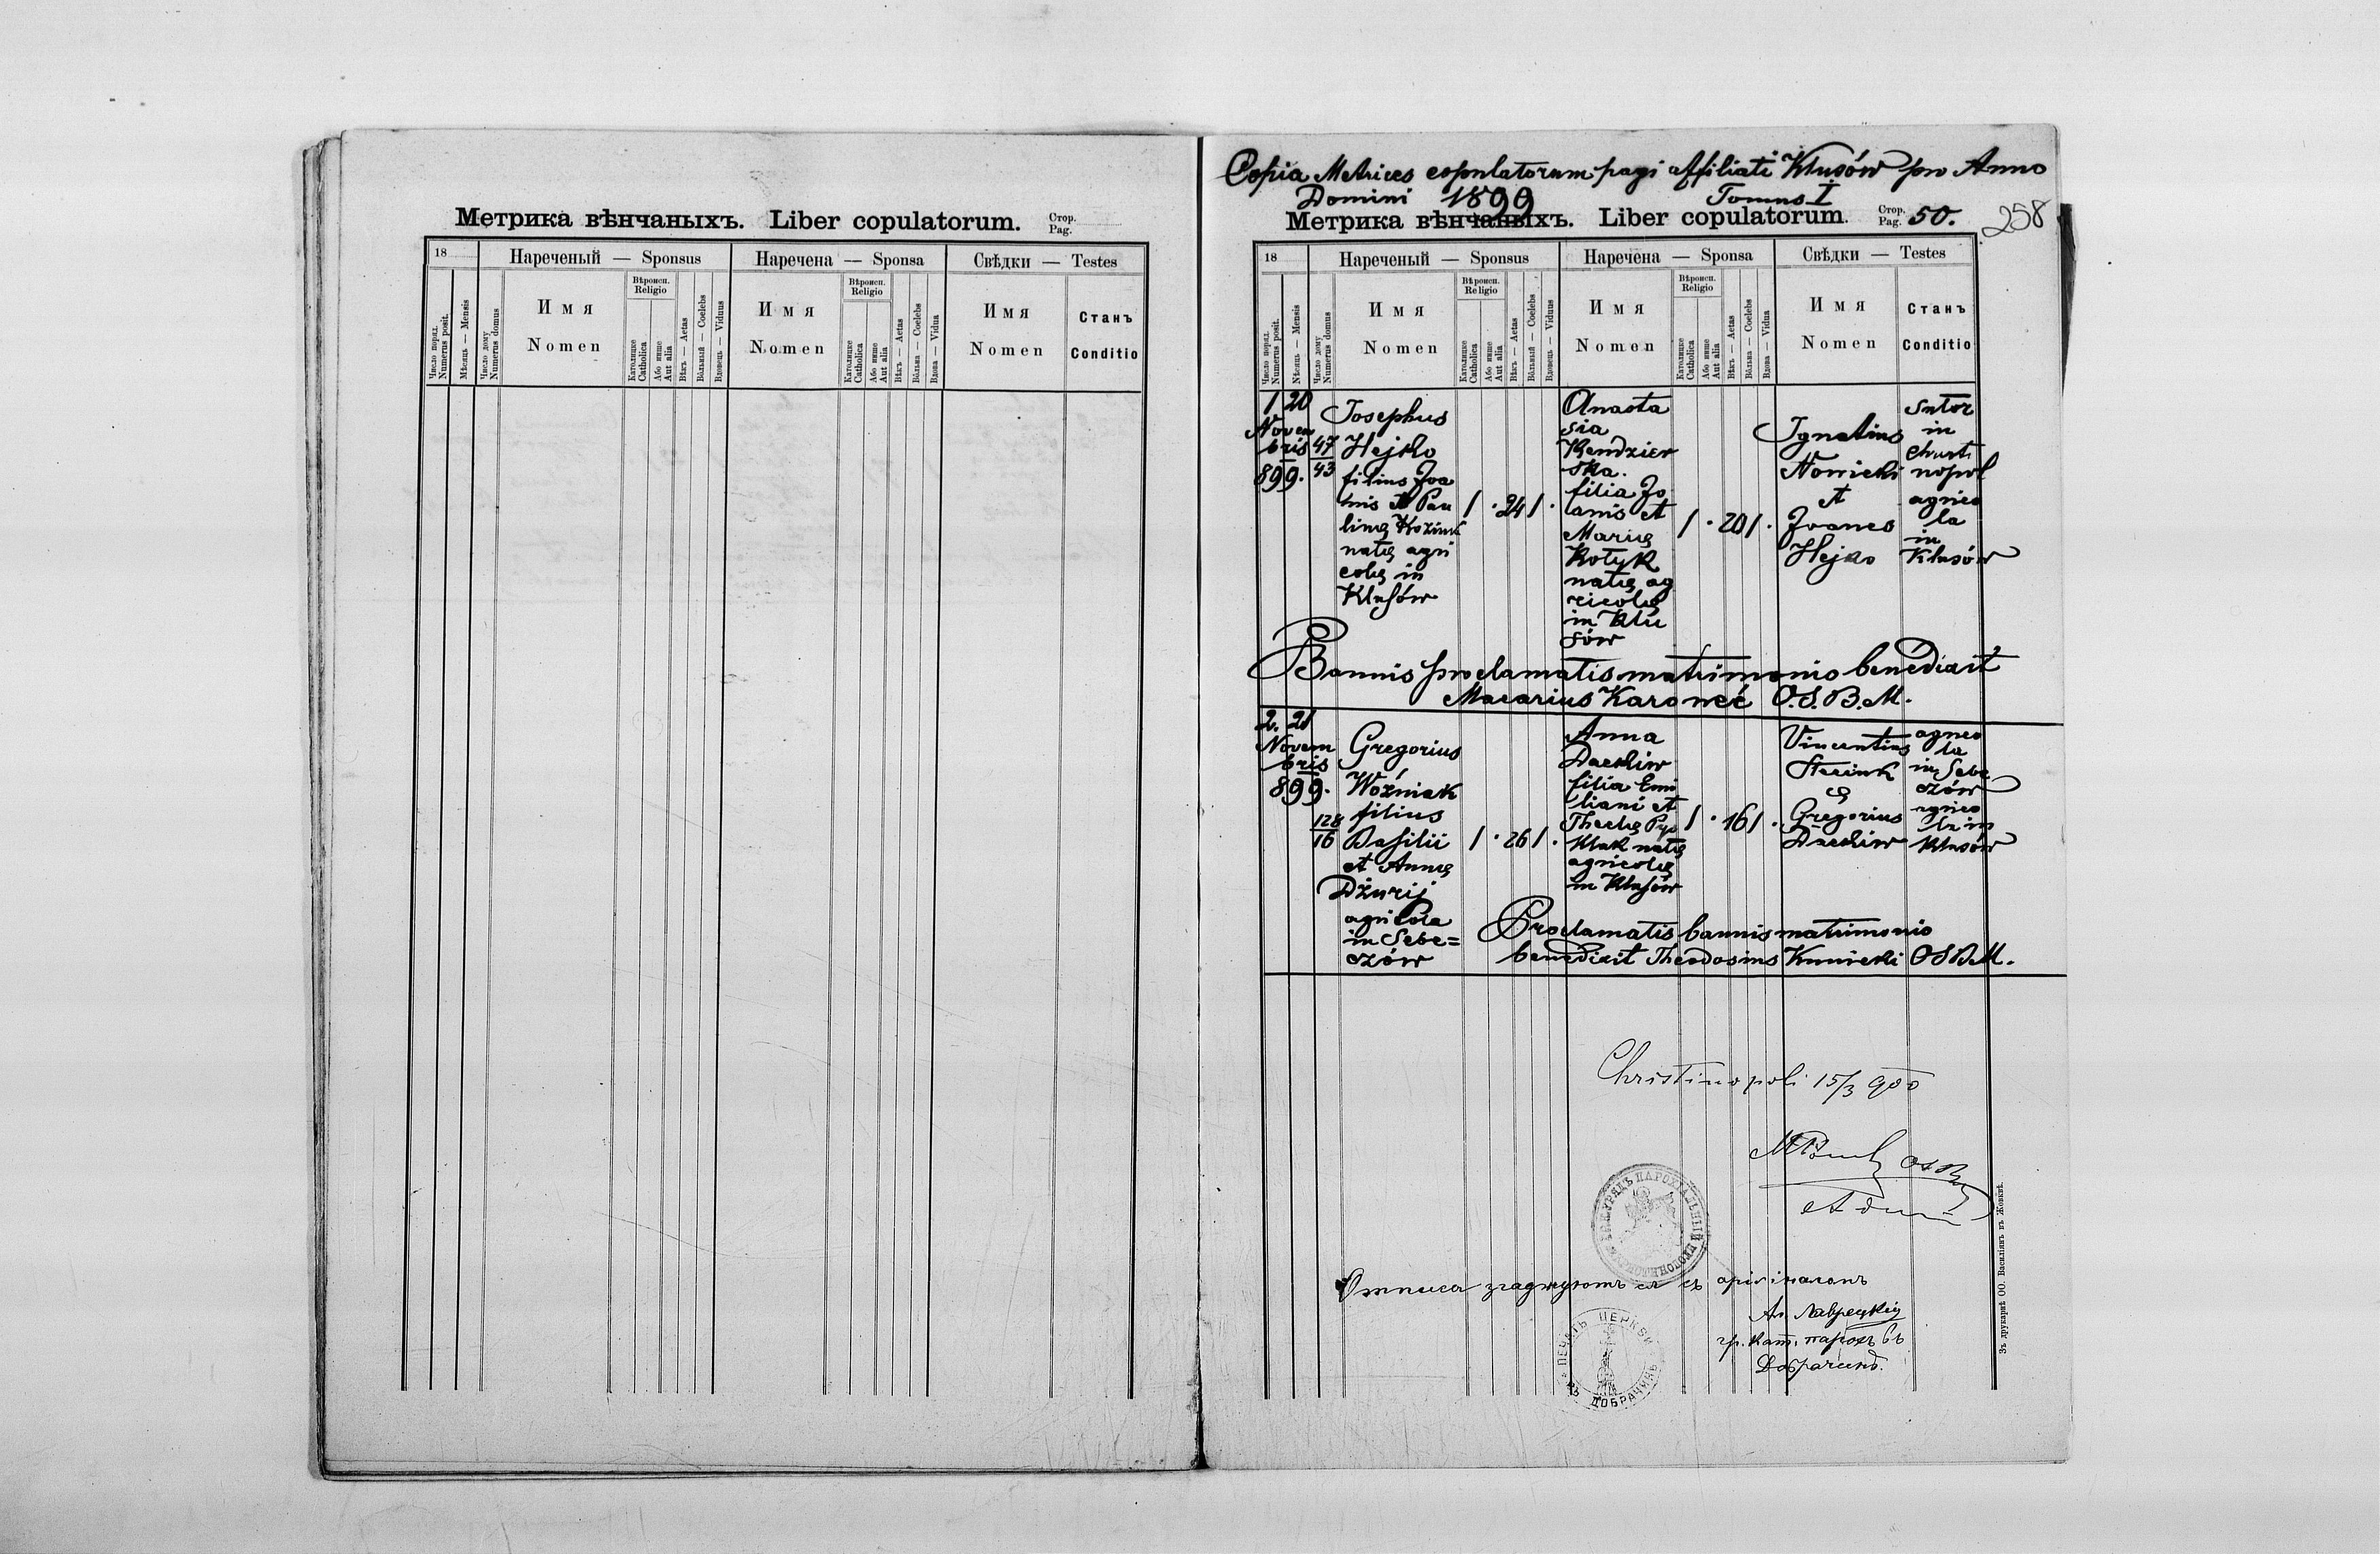 Метрика вѣнчаныхъ. Liber copulatorum. Стор. Pag.
18
Нареченый — Sponsus
Наречена — Sponsa
Свѣдки — Testes
Число поряд. Numerus posit.
Мѣсяць — Mensis
Число дому Numerus domus
Имя
Nomen
Вѣроисп. Religio
Католицке Catholica
Або инше Aut alia
Вѣкъ — Aetas
Вôльный — Coelebs
Вдовець — Viduus
Имя
Nomen
Вѣроисп. Religio
Католицке Catholica
Або инше Aut alia
Вѣкъ — Aetas
Вôльна — Coelebs
Вдова — Vidua
Имя
Nomen
Станъ
Conditio
Copia Metrices copulatorum pagi affiliati Kłusów pro Anno
Domini 1899 Tomus I
Метрика вѣнчаныхъ. Liber copulatorum. Стор. Pag. 50.
258
18
Нареченый — Sponsus
Наречена — Sponsa
Свѣдки — Testes
Число поряд. Numerus posit.
Мѣсяць — Mensis
Число дому Numerus domus
Имя
Nomen
Вѣроисп. Religio
Католицке Catholica
Або инше Aut alia
Вѣкъ — Aetas
Вôльный — Coelebs
Вдовець — Viduus
Имя
Nomen
Вѣроисп. Religio
Католицке Catholica
Або инше Aut alia
Вѣкъ — Aetas
Вôльна — Coelebs
Вдова — Vidua
Имя
Nomen
Станъ
Conditio
1 20
Novem
bris
899.
47
43
Josephus
Hejko
filius Joa
nis et Pau
linę
natę agri
colę in
Kłusów
1 . 24 1 .
Anasta
sia
Kendzier
ska.
filia Jo
anis et
Marię
Kotyk
natę ag
ricolę
in Kłu
sów
1 . 20 1 .
Ignatius
Nowicki
et
Joanes
Hejko
sutor
in
Christi
nopol
agrico
la
in
Kłusów
Bannis proclamatis matrimonio benedixit
Macarius Karoweć O.S.B.M.
2. 21
Novem
bris
899.
128
16
Gregorius
Woźniak
filius
Basilii
et Annę
Dżurij
agricola
in Sebe=
czów
1 . 26 1 .
Anna
Dackiw
filia Emi
liani et
Theclę Py
kluk natę
agricolę
in Kłusów
1 . 16 1 .
Vincentius
&
Gregorius
Dackiw
agrico
la
in Sebe
czów
agrico
la in
Kłusów
Proclamatis bannis matrimonio
benedixit Theodosius Kunicki OSBM.
Christinopoli 15/3 900
Отписа згаджуютъ ся съ оригіналомъ
Ал. Лаврецкій
гр. кат. парохъ въ
Добрачинѣ.
ПЕЧАТЬ ЦЕРКВИ ВЪ ДОБРАЧИНѢ
Зъ друкарнѣ ОО. Василіянъ въ Жовквѣ.